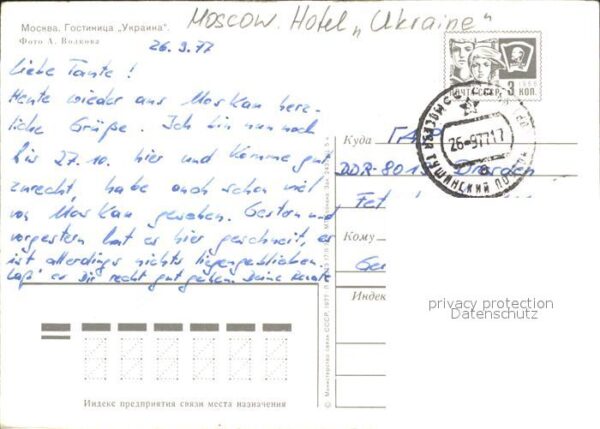 Moscow. Hotel „Ukraine"
Москва. Гостиница „Украина".
Фото А. Волкова
26.9.77
Liebe Tante!
Heute wieder aus Moskau herz-
liche Grüße. Ich bin nun noch
bis 27.10. hier und komme gut
zurecht, habe auch schon viel
von Moskau gesehen. Gestern und
vorgestern hat es hier geschneit, es
ist allerdings nichts liegengeblieben.
Laß' es Dir recht gut gehen. Deine Renate
ПОЧТА СССР 3 КОП.
1966
26-97717
Куда ГДР
DDR-801 Dresden
Fet
Кому
Ger
Индекс
privacy protection
Datenschutz
© Министерство связи СССР. 1977
Индекс предприятия связи места назначения